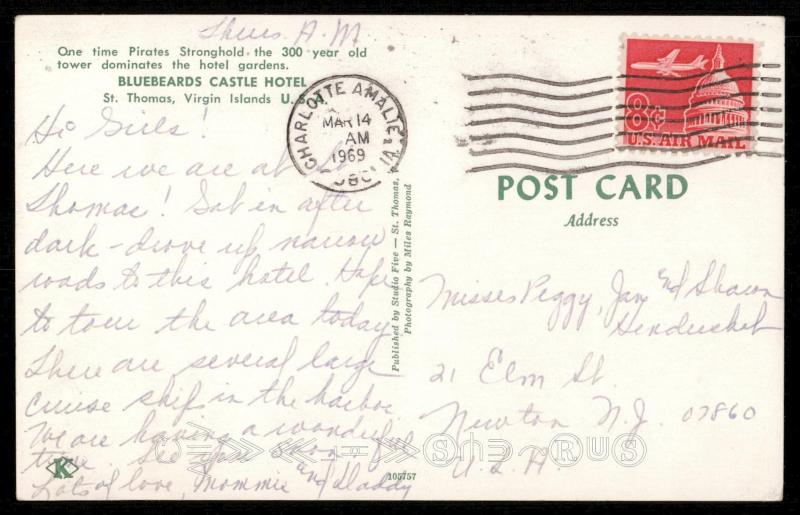 Thurs. A.M.
One time Pirates Stronghold the 300 year old
tower dominates the hotel gardens.
BLUEBEARDS CASTLE HOTEL
St. Thomas, Virgin Islands U.S.A.
Hi Girls!
Here we are at St.
Thomas! Got in after
dark - drove up narrow
roads to this hotel. Hope
to tour the area today.
There are several large
cruise ships in the harbor.
We are having a wonderful
time. See you soon,
Lots of love, Mommie and Daddy
K
105757
Published by Studio Five — St. Thomas, V.I.
Photography by Miles Raymond
CHARLOTTE AMALIE, VI
MAR 14
AM
1969
8¢
U.S. AIR MAIL
POST CARD
Address
Misses Peggy, Jan and Sharon
Hendershot
21 Elm St.
Newton N.J. 07860
U.S.A.
RUS